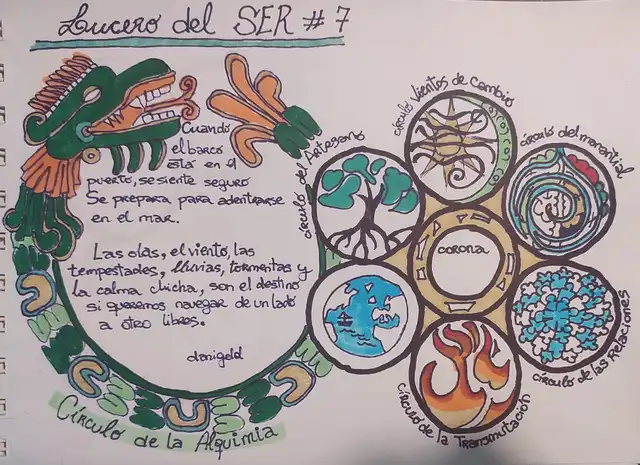 Lucero del SER # 7
Cuando
el barco
está en el
puerto, se siente seguro
Se prepara para adentrarse
en el mar.
Las olas, el viento, las
tempestades, lluvias, tormentas y
la calma chicha, son el destino
si queremos navegar de un lado
a otro libres.
danigeld
Círculo de la Alquimia
círculo del Artesano
círculo Vientos de cambio
círculo del manantial
corona
círculo de las Relaciones
Círculo de la Transmutación